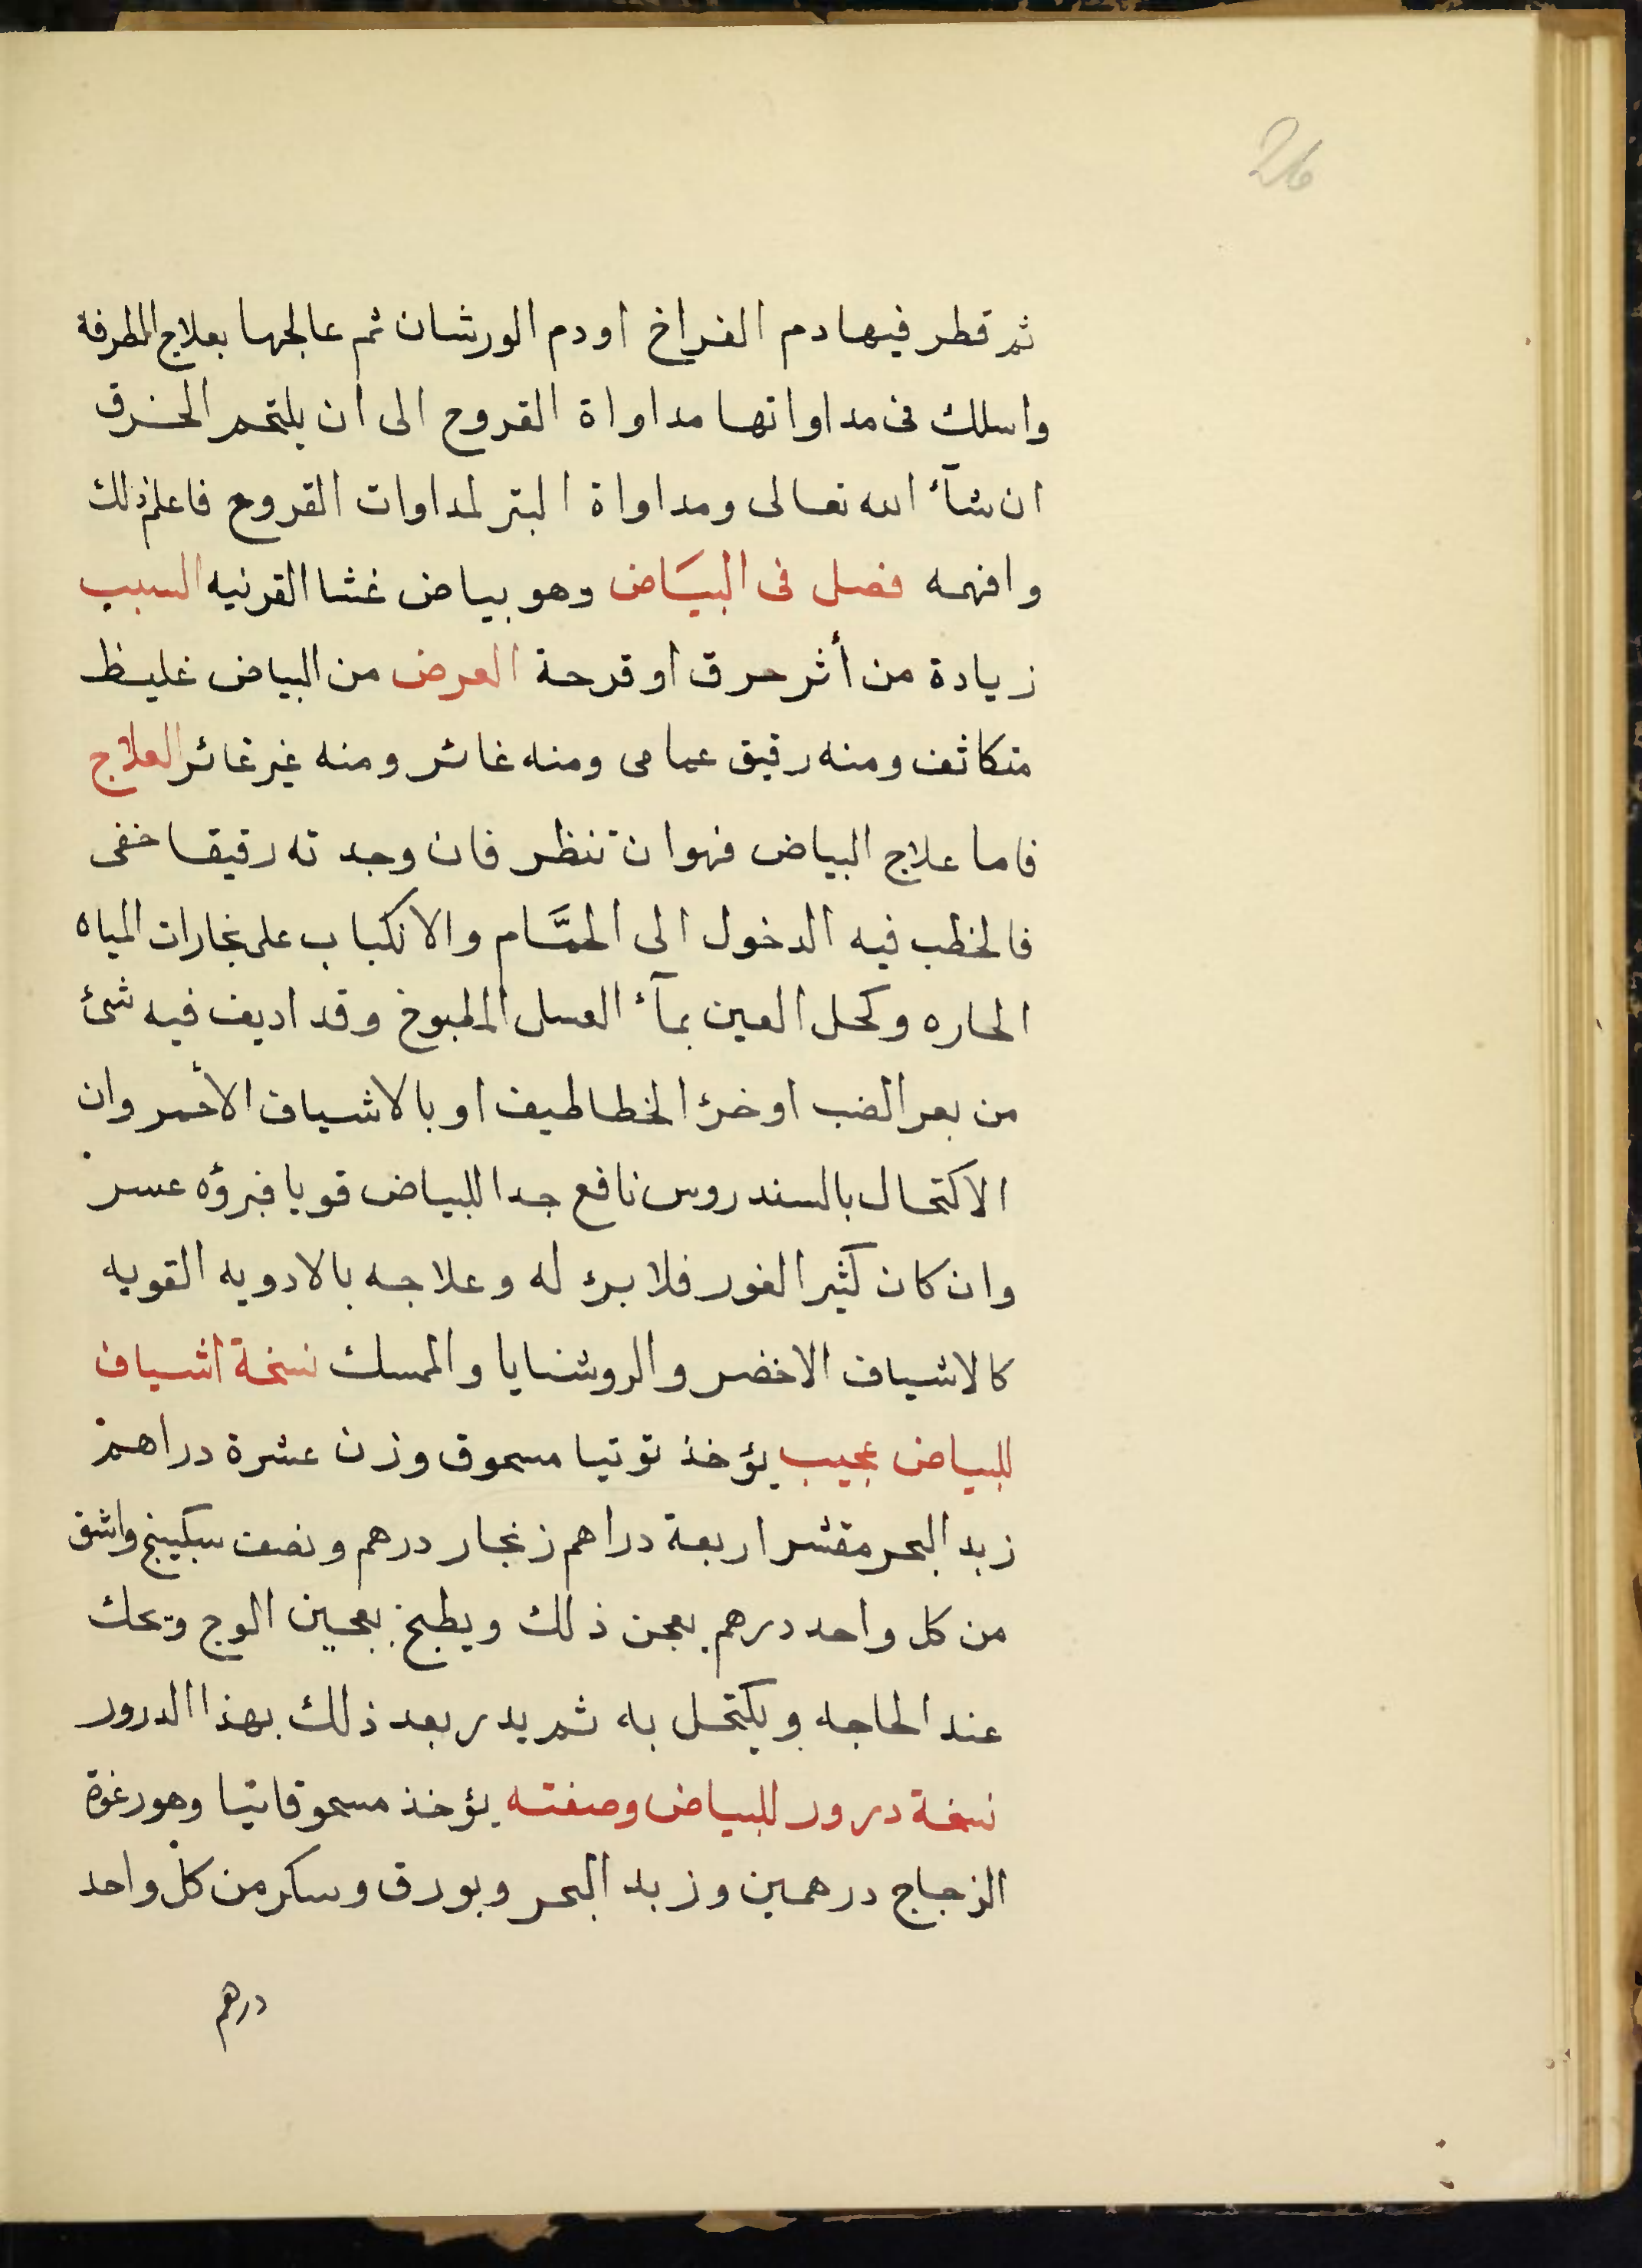 26
ثم قطر فيها دم الفراخ او دم الورشان ثم عالجها بعلاج الطرفة
واسلك فى مداواتها مداواة القروح الى ان يلتحم الخرق
ان شآء الله تعالى ومداواة البتر لمداوات القروح فاعلم ذلك
وافهمه فصل فى البيَاض وهو بياض غشا القرنيه السبب
زيادة من أثر حرق او قرحة العرض من البياض غليظ
متكاثف ومنه رقيق عمامى ومنه غائر ومنه غير غائر العلاج
فاما علاج البياض فهو ان تنظر فان وجدته رقيقا خفى
فالخطب فيه الدخول الى الحمَّام والانكباب على بخارات المياه
الحاره وكحل العين بمآء العسل المطبوخ وقد اديف فيه شئ
من بعر الضب او خرؤ الخطاطيف او بالاشياف الأحمر وان
الاكتحال بالسندروس نافع جدا للبياض قويا فبرؤه عسر
وان كان كثير الغور فلا برء له وعلاجه بالادويه القويه
كالاشياف الاخضر والروشنايا والمسك نسخة اشياف
للبياض عجيب يؤخذ توتيا مسحوق وزن عشرة دراهم
زبد البحر مقشر اربعة دراهم زنجار درهم ونصف سكبينج واشق
من كل واحد درهم يعجن ذلك ويطبخ بعجين الوج ويحك
عند الحاجه ويكتحل به ثم يدر بعد ذلك بهذا الدرور
نسخة درور للبياض وصفته يؤخذ مسحوقانيا وهو رغوة
الزجاج درهمين وزبد البحر وبورق وسكر من كل واحد
درهم